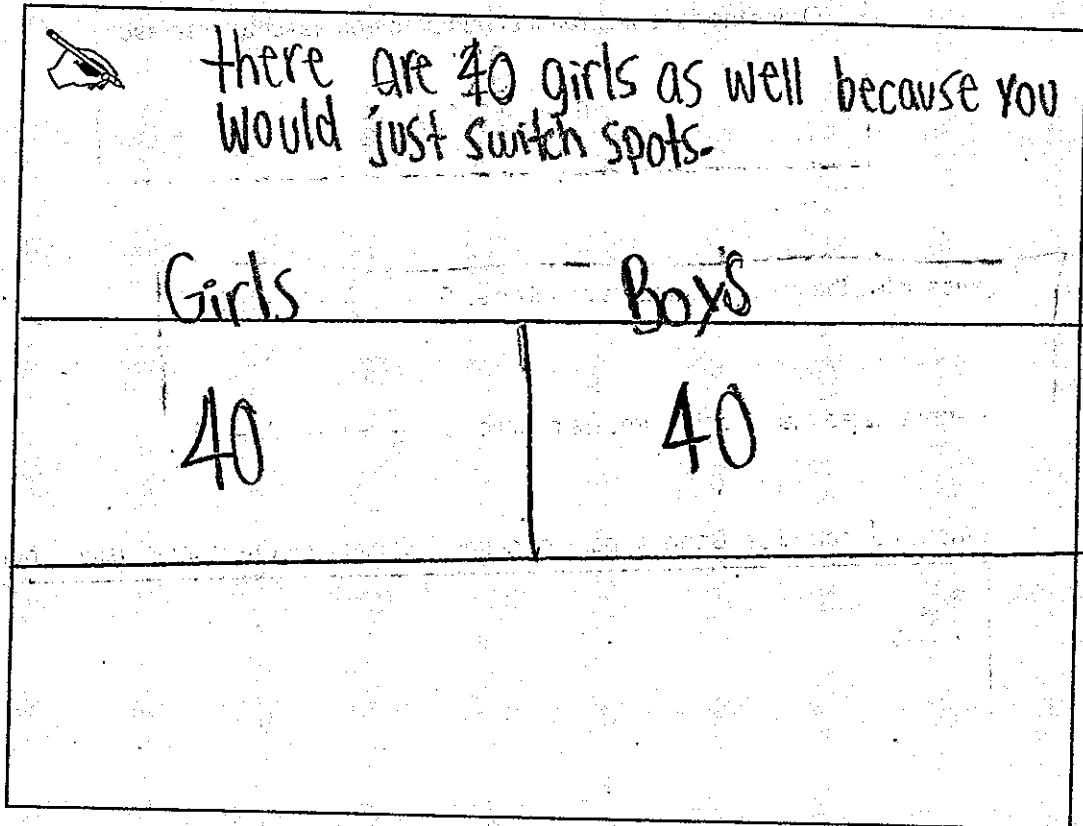 there are 40 girls as well because you
would just switch spots.
Girls Boys
40 40